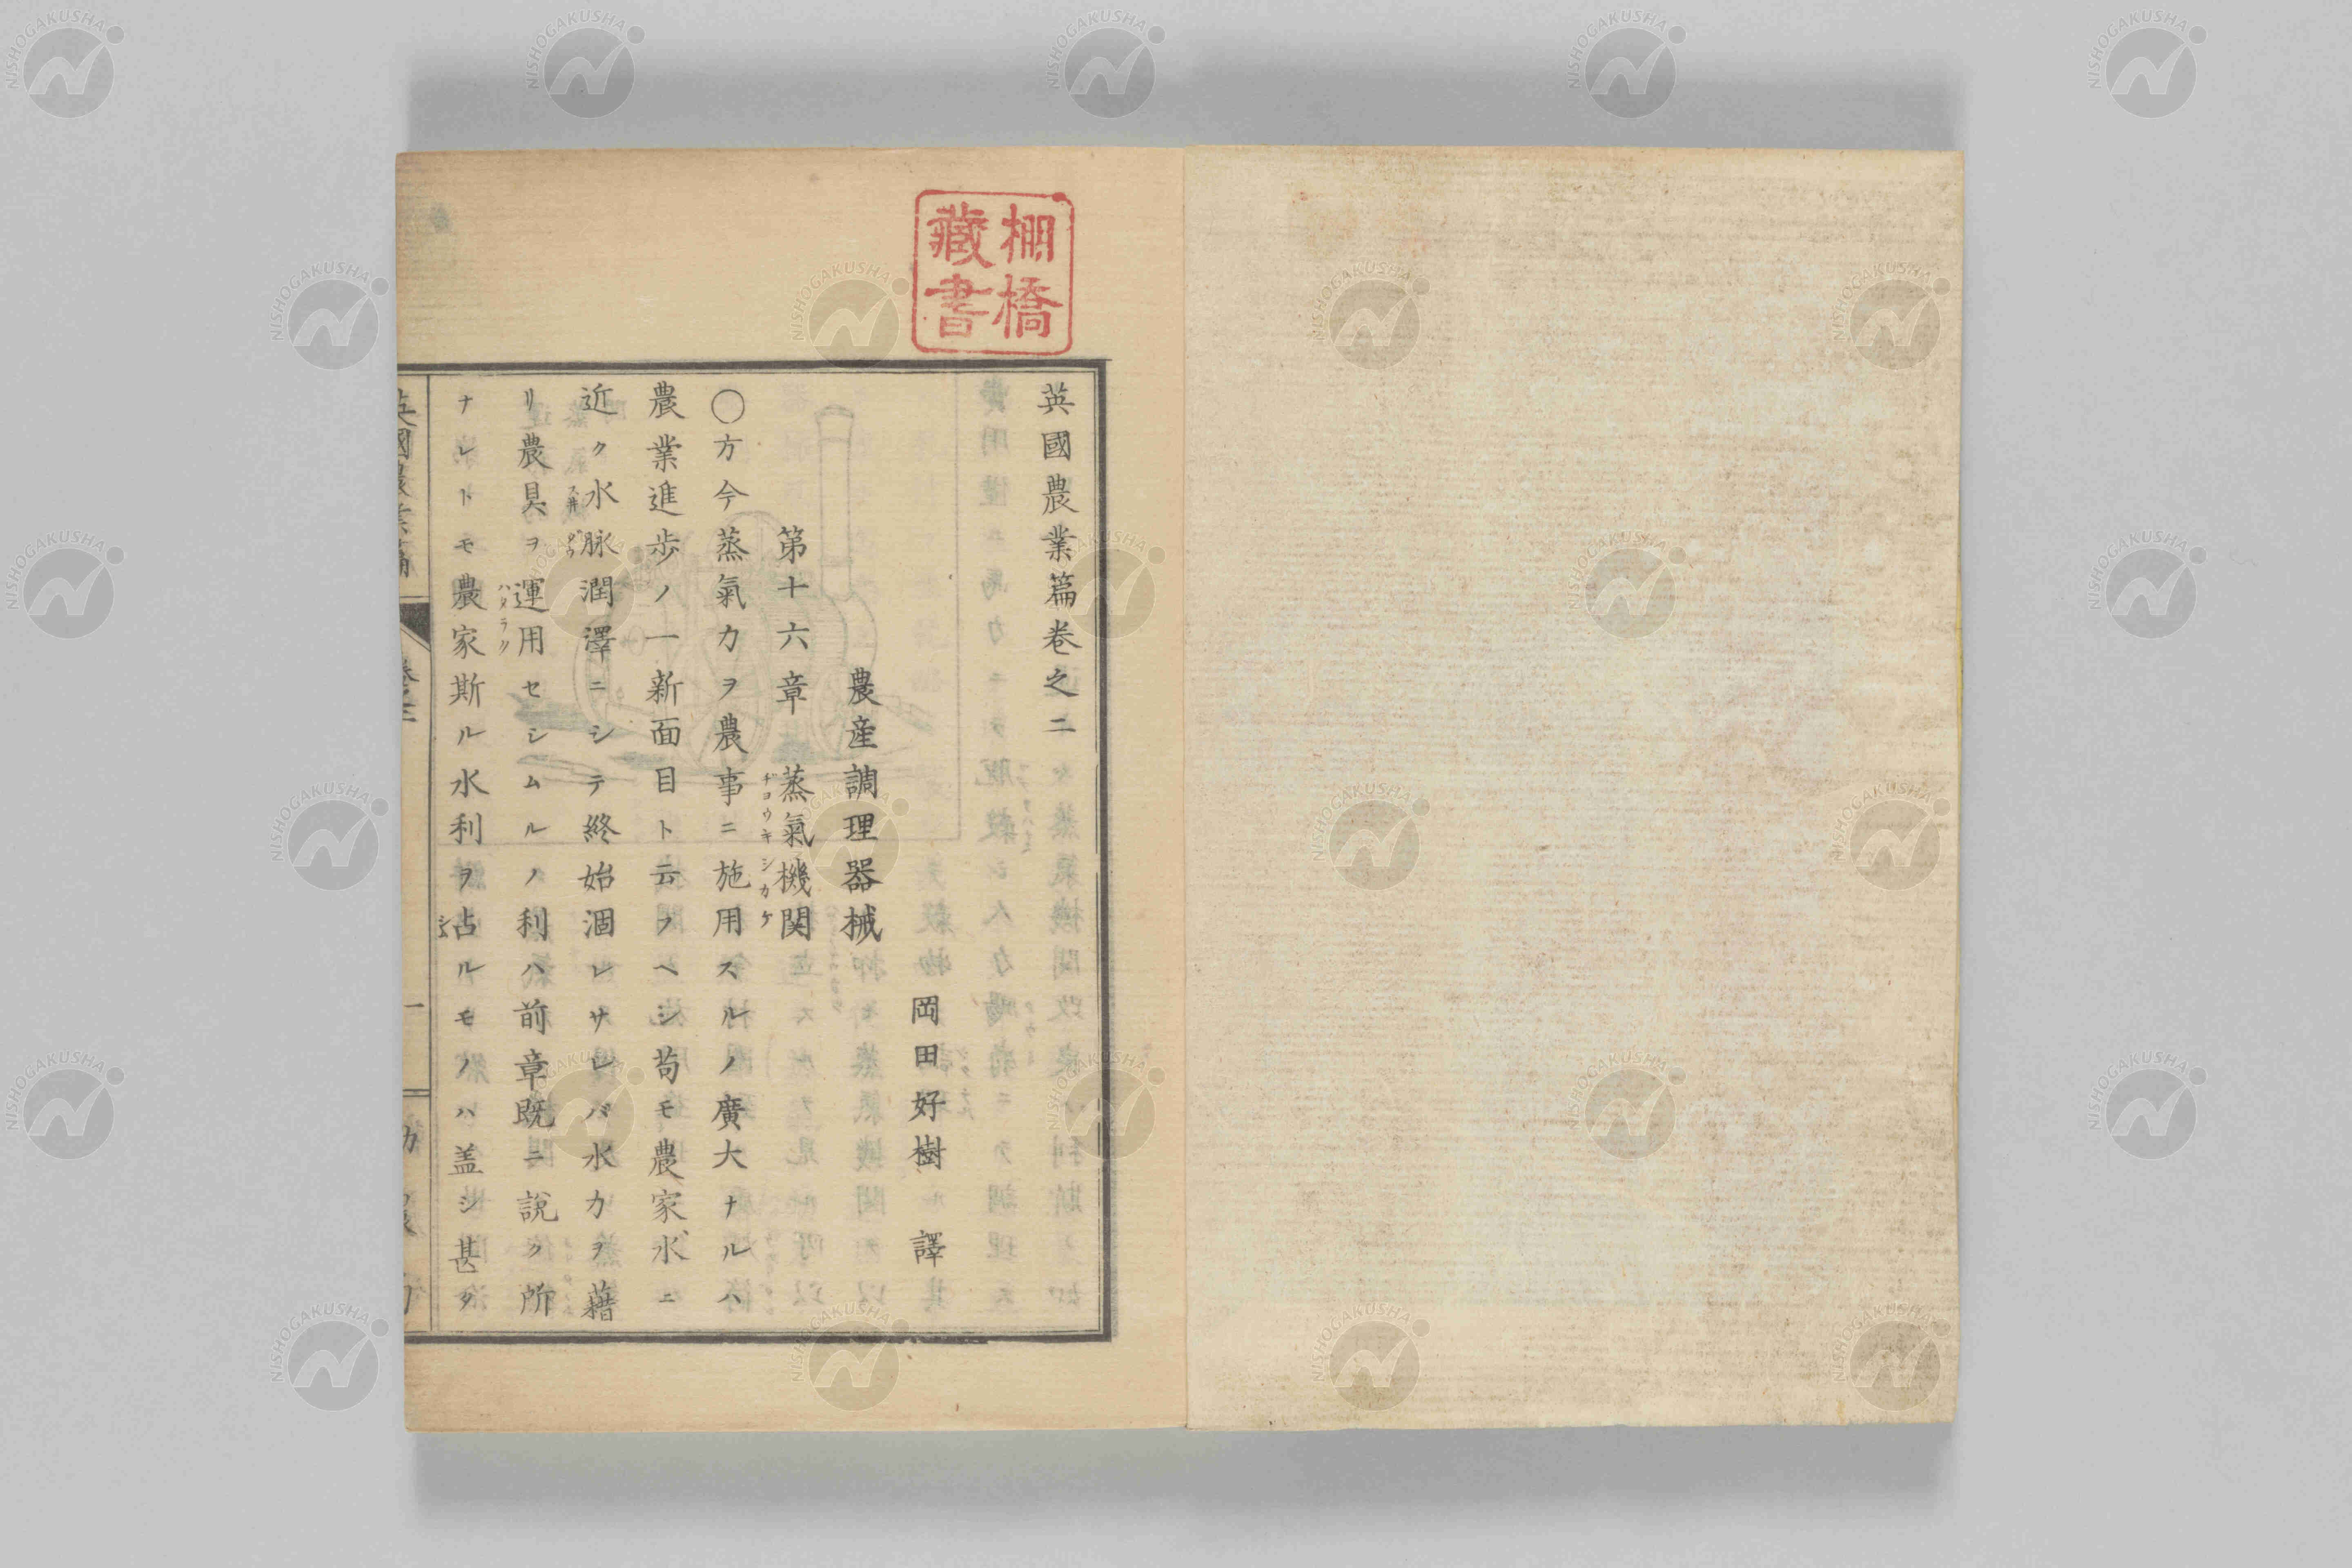 棚橋
藏書
英國農業篇卷之二
岡田好樹 譯
農産調理器械
第十六章 蒸氣機関
ヂヨウキシカケ
〇方今蒸氣力ヲ農事ニ施用スルノ廣大ナルハ
農業進歩ノ一新面目ト云フヘシ苟モ農家水ニ
近ク水脉潤澤ニシテ終始涸レサレバ水力ヲ藉
リ農具ヲ運用セシムルノ利ハ前章既ニ説ク所
ハタラク
ナレトモ農家斯ル水利ヲ占ルモノハ盖シ甚タ
英國農業篇
一
NISHOGAKUSHA